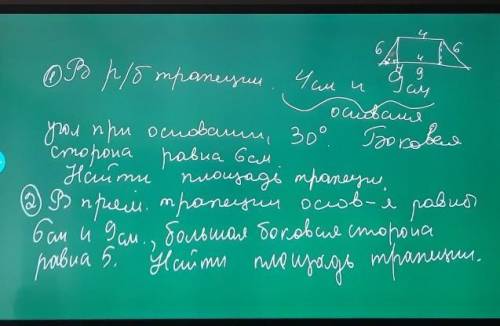 4
6 6
4
9
① В р/б трапеции. 4см и 9см
основания
угол при основании, 30°. Боковая
сторона равна 6см
Найти площадь трапеци,
② В прям. трапеции основ-я равны
6см и 9см., большая боковая сторона
равна 5. Найти площадь трапеции.